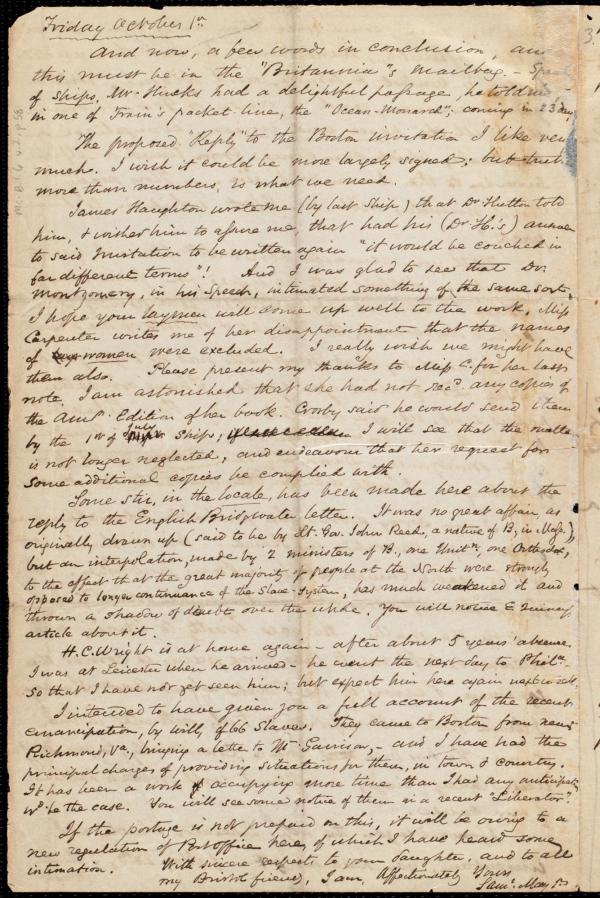 Friday October 1st
And now, a few words in conclusion, and
this must be in the "Britannia"'s mailbag. - Speaking
of ships, Mr. Hucks had a delightful passage, he told me
in one of Train's packet-line, the "Ocean-Monarch"; coming in 23 days
The proposed "Reply" to the Boston invitation I like very
much. I wish it could be more largely signed; but truth
more than numbers, is what we need.
James Haughton wrote me (by last Ship) that Dr. Hutton told
him, & wished him to assure me, that had his (Dr. H.'s) answer
to said Invitation to be written again "it would be couched in
far different terms"! And I was glad to see that Dr.
Montgomery, in his speech, intimated something of the same sort.
I hope your laymen will come up well to the work. Miss
Carpenter writes me of her disappointment that the names
of women were excluded. I really wish we might have
them also. Please present my thanks to Miss C. for her last
note. I am astonished that she had not recd. any copies of
the Amn. Edition of her book. Crosby said he would send them
by the 1st of July Ships; I will see that the matter
is not longer neglected, and endeavour that her request for
some additional copies be complied with.
Some stir, in the locale, has been made here about the
reply to the English Bridgwater letter. It was no great affair, as
originally drawn up (said to be by Lt. Gov. John Reed, a native of B. in Mass.),
but an interpolation, made by 2 ministers of B., one Unitn., one Orthodox,
to the effect that the great majority of people at the North were strongly
opposed to longer continuance of the Slave-System, has much weakened it and
thrown a shadow of doubt over the whole. You will notice E. Quincy's
article about it.
H. C. Wright is at home again - after about 5 years' absence.
I was at Leicester when he arrived - he went the next day to Phila.
So that I have not yet seen him; but expect him here again next week.
I intended to have given you a full account of the recent
emancipation, by will, of 66 Slaves. They came to Boston from near
Richmond, Va., bringing a letter to Mr. Garrison, - and I have had the
principal charge of providing situations for them, in town & country.
It has been a work of occupying more time than I had any anticipatn.
wd. be the case. You will see some notice of them in a recent "Liberator".
If the postage is not prepaid on this, it will be owing to a
new regulation of Post office here, of which I have heard some
intimation. With sincere respects to your daughter, and to all
my Bristol friends, I am, Affectionately Yours
Saml. May Jr.